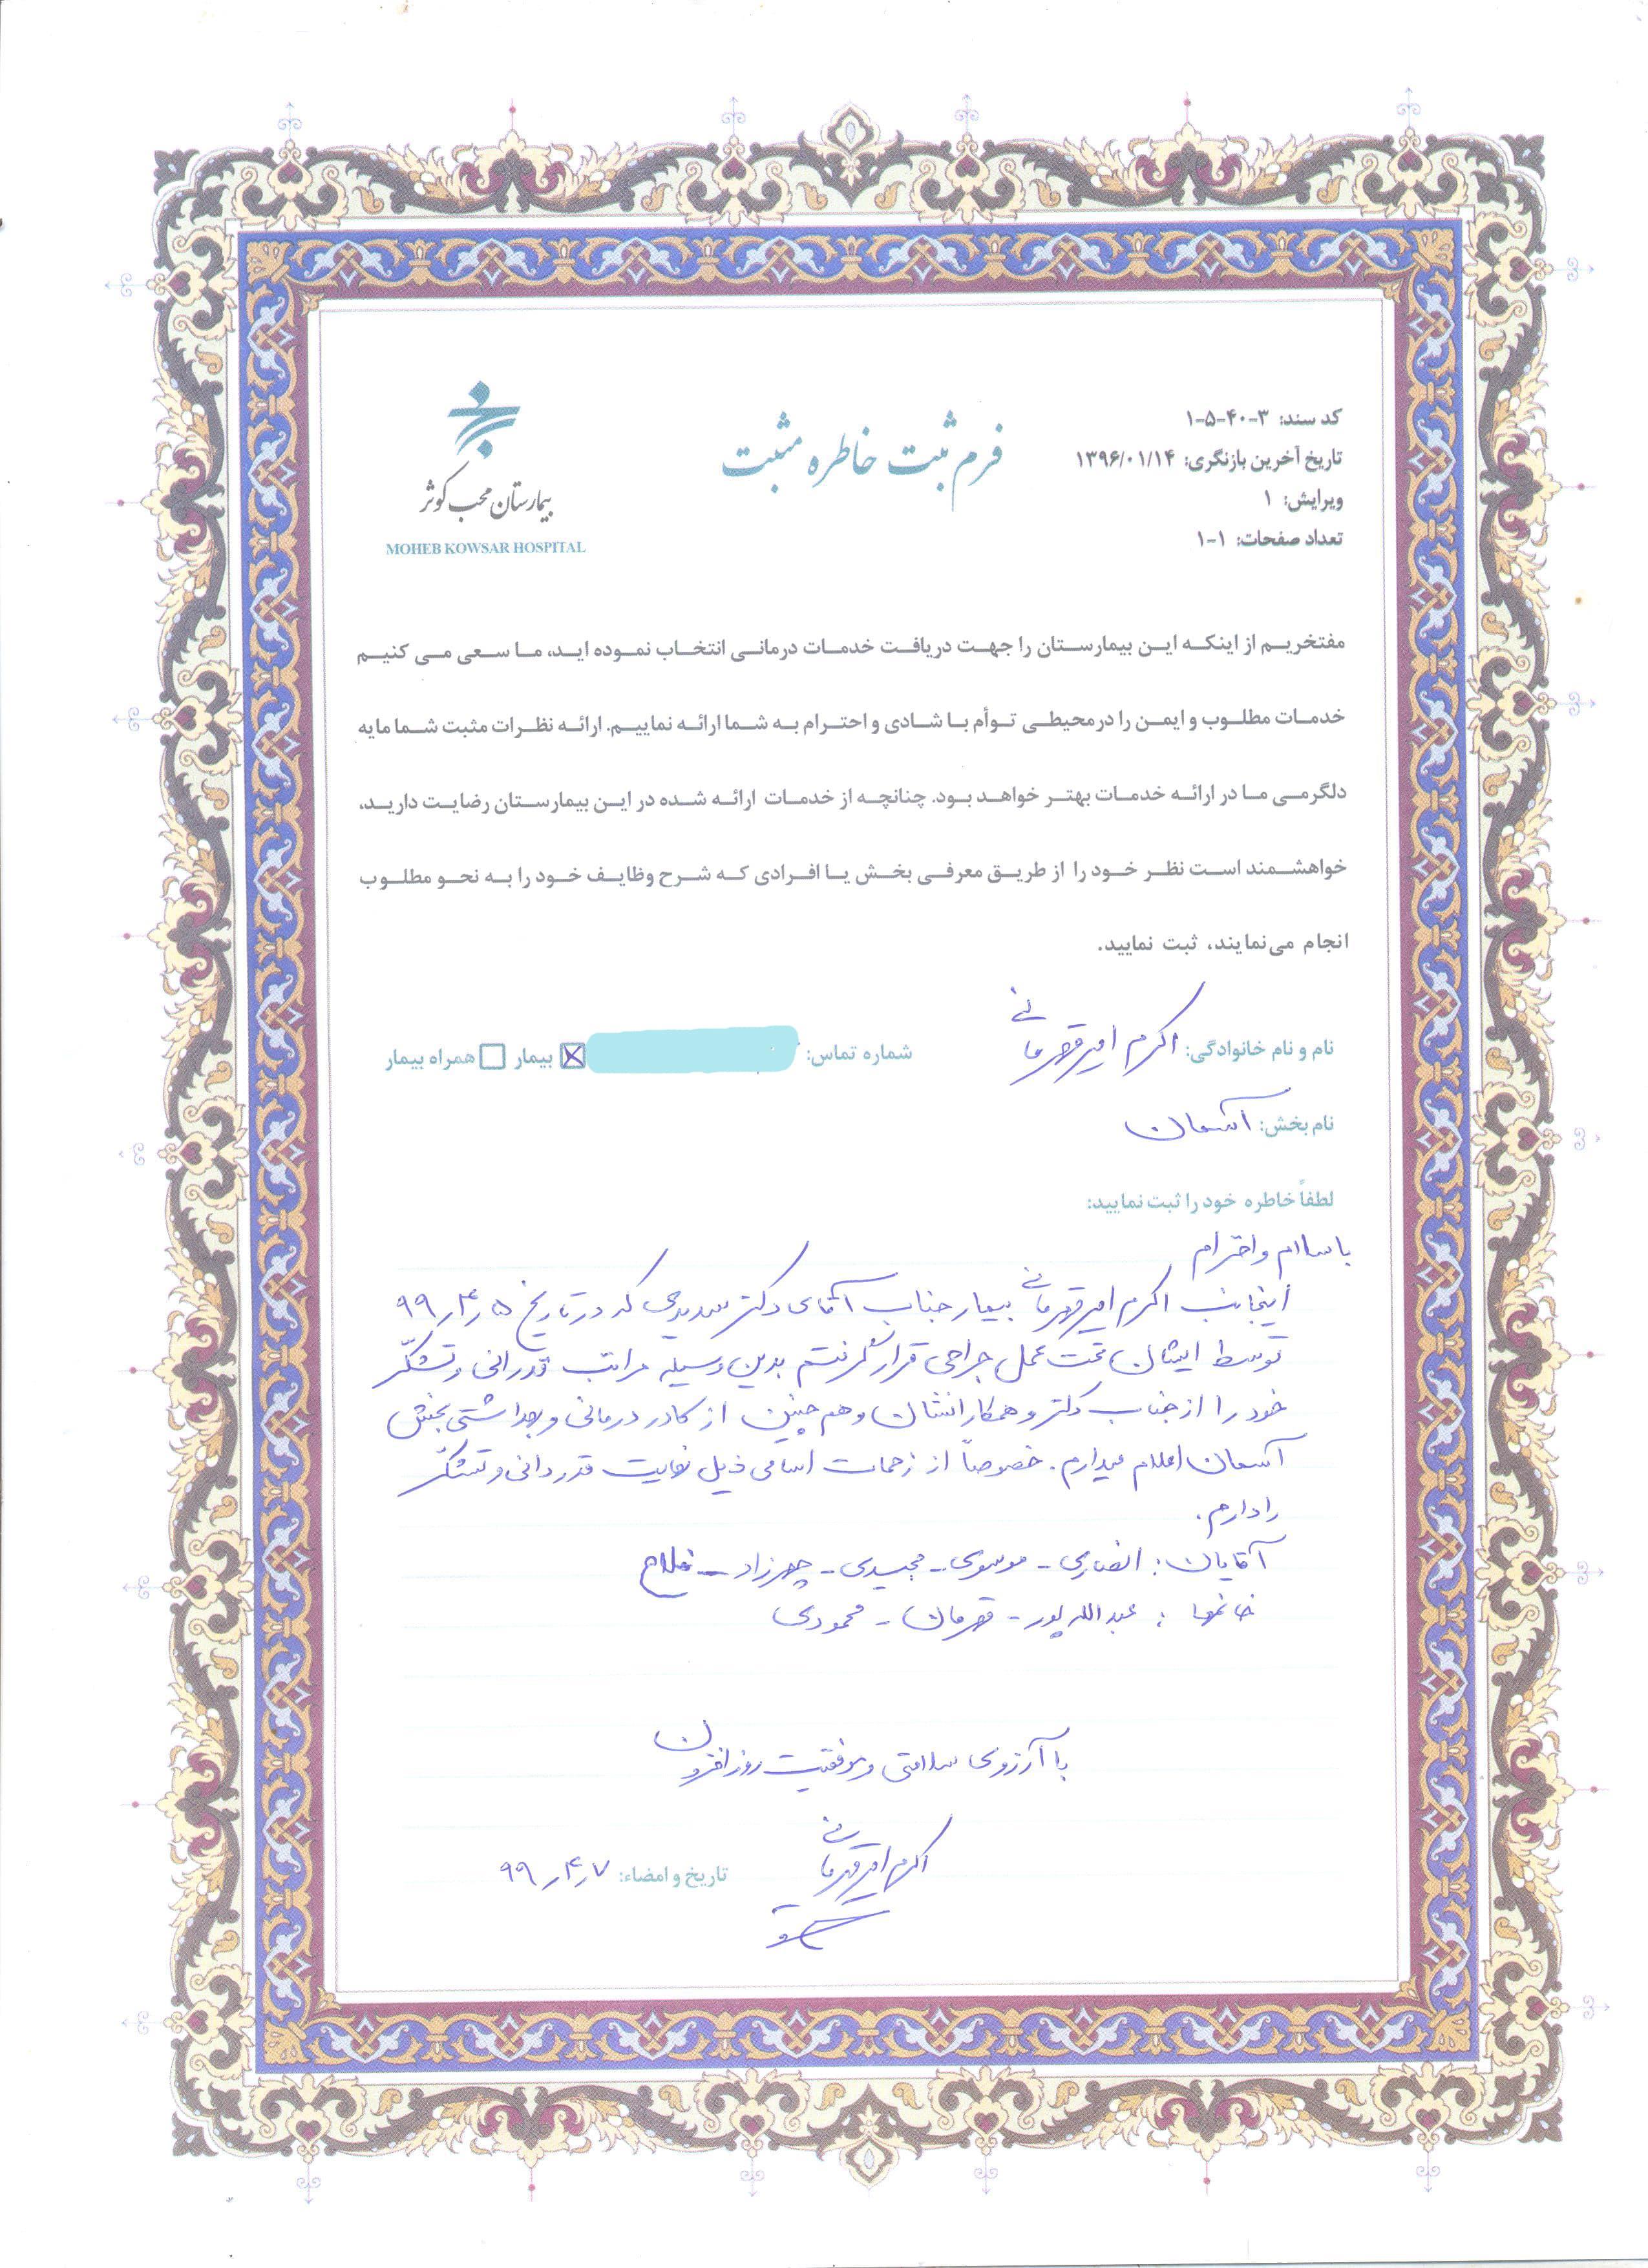 کد سند: ۳-۴۰-۵-۱
تاریخ آخرین بازنگری: ۱۳۹۶/۰۱/۱۴
ویرایش: ۱
تعداد صفحات: ۱-۱
فرم ثبت خاطره مثبت
بیمارستان محب کوثر
MOHEB KOWSAR HOSPITAL
مفتخریم از اینکه این بیمارستان را جهت دریافت خدمات درمانی انتخاب نموده اید، ما سعی می کنیم
خدمات مطلوب و ایمن را در محیطی توأم با شادی و احترام به شما ارائه نماییم. ارائه نظرات مثبت شما مایه
دلگرمی ما در ارائه خدمات بهتر خواهد بود. چنانچه از خدمات ارائه شده در این بیمارستان رضایت دارید،
خواهشمند است نظر خود را از طریق معرفی بخش یا افرادی که شرح وظایف خود را به نحو مطلوب
انجام می‌نمایند، ثبت نمایید.
نام و نام خانوادگی: اکرم امیرقهرمانی شماره تماس: بیمار همراه بیمار
نام بخش: آسمان
لطفاً خاطره خود را ثبت نمایید:
با سلام و احترام
اینجانب اکرم امیرقهرمانی بیمار جناب آقای دکتر که در تاریخ ۹۹٫۴٫۵
توسط ایشان تحت عمل جراحی قرار گرفتم بدین وسیله مراتب قدردانی و تشکر
خود را از جناب دکتر و همکارانشان و هم چنین از کادر درمانی و بهداشتی بخش
آسمان اعلام میدارم. خصوصاً از زحمات اسامی ذیل نهایت قدردانی و تشکر
را دارم.
آقایان: انصاری - موسوی - مجیدی - چهرزاد - فلاح
خانمها: عبدالله پور - قهرمان - محمودی
با آرزوی سلامتی و موفقیت روزافزون
اکرم امیرقهرمانی
تاریخ و امضاء: ۹۹٫۴٫۷